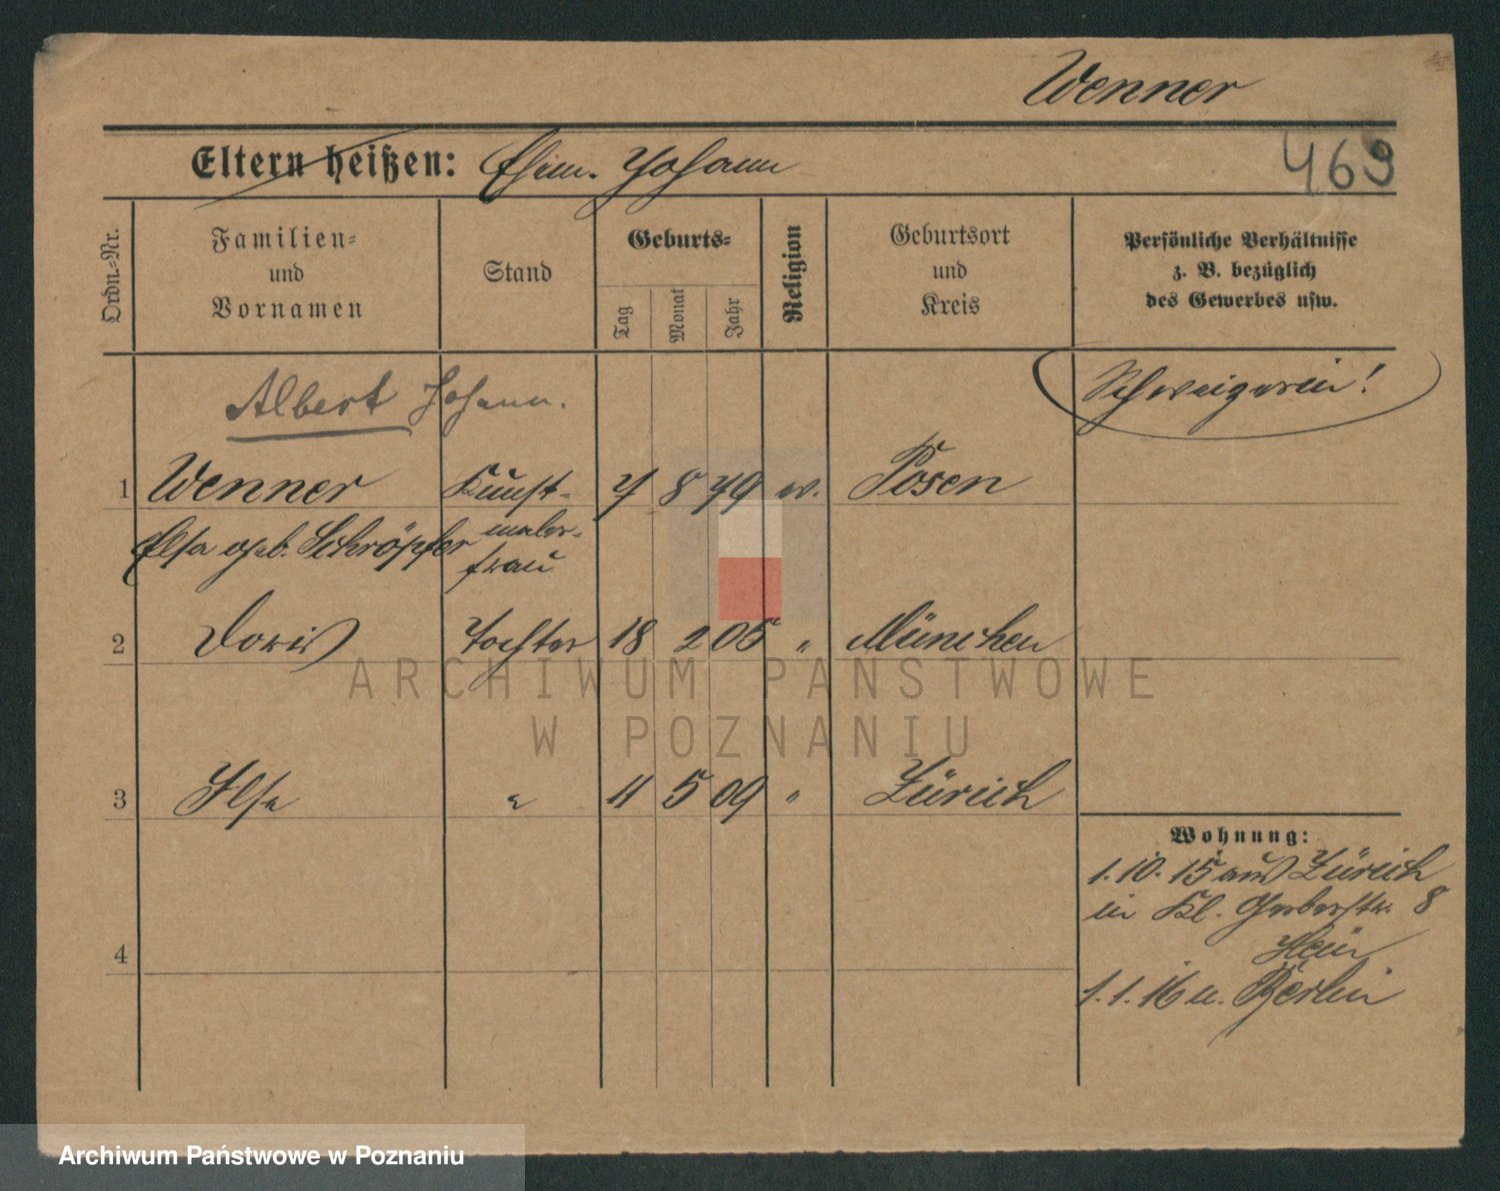 Wenner
Eltern heißen: Ehem. Johann
469
Ordn.-Nr.
Familien- und Vornamen
Stand
Geburts-
Tag
Monat
Jahr
Religion
Geburtsort und Kreis
Persönliche Verhältnisse
z. B. bezüglich
des Gewerbes usw.
Albert Johann.
Schweizerin!
1 Wenner Kunst- 7 8 79 ev. Posen
Elsa geb. Schröpfer maler-
frau
2 Doris Tochter 18 2 05 " München
3 Ilse " 11 5 09 " Zürich
Wohnung:
1.10.15 aus Zürich
in Kl. Gerberstr. 8
4
1.1.16 n. Berlin
ARCHIWUM PAŃSTWOWE
W POZNANIU
Archiwum Państwowe w Poznaniu